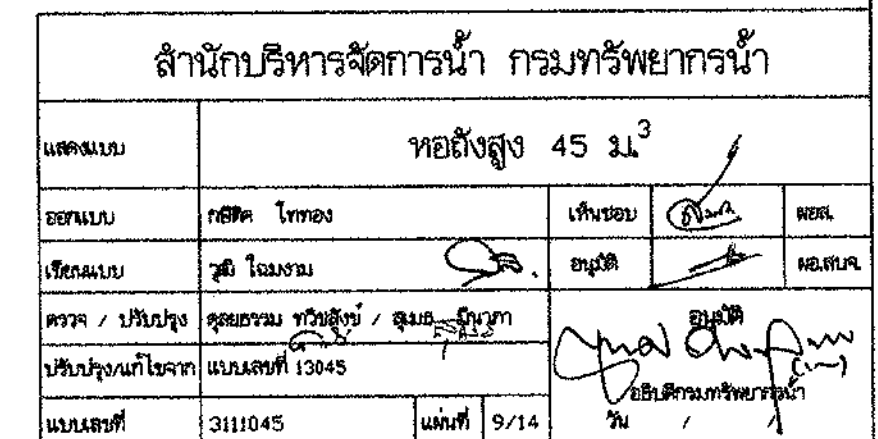 สำนักบริหารจัดการน้ำ กรมทรัพยากรน้ำ
แสดงแบบ หอถังสูง 45 ม.3
ออกแบบ โททอง เห็นชอบ ผอส.
เขียนแบบ วุฒิ โฉมงาม อนุมัติ ผอ.สบจ.
ตรวจ / ปรับปรุง ดุลยธรรม ทวิชสังข์ / สุเมธ มีนาภา อนุมัติ
ปรับปรุง/แก้ไขจาก แบบเลขที่ 13045
อธิบดีกรมทรัพยากรน้ำ
แบบเลขที่ 3111045 แผ่นที่ 9/14 วัน / /